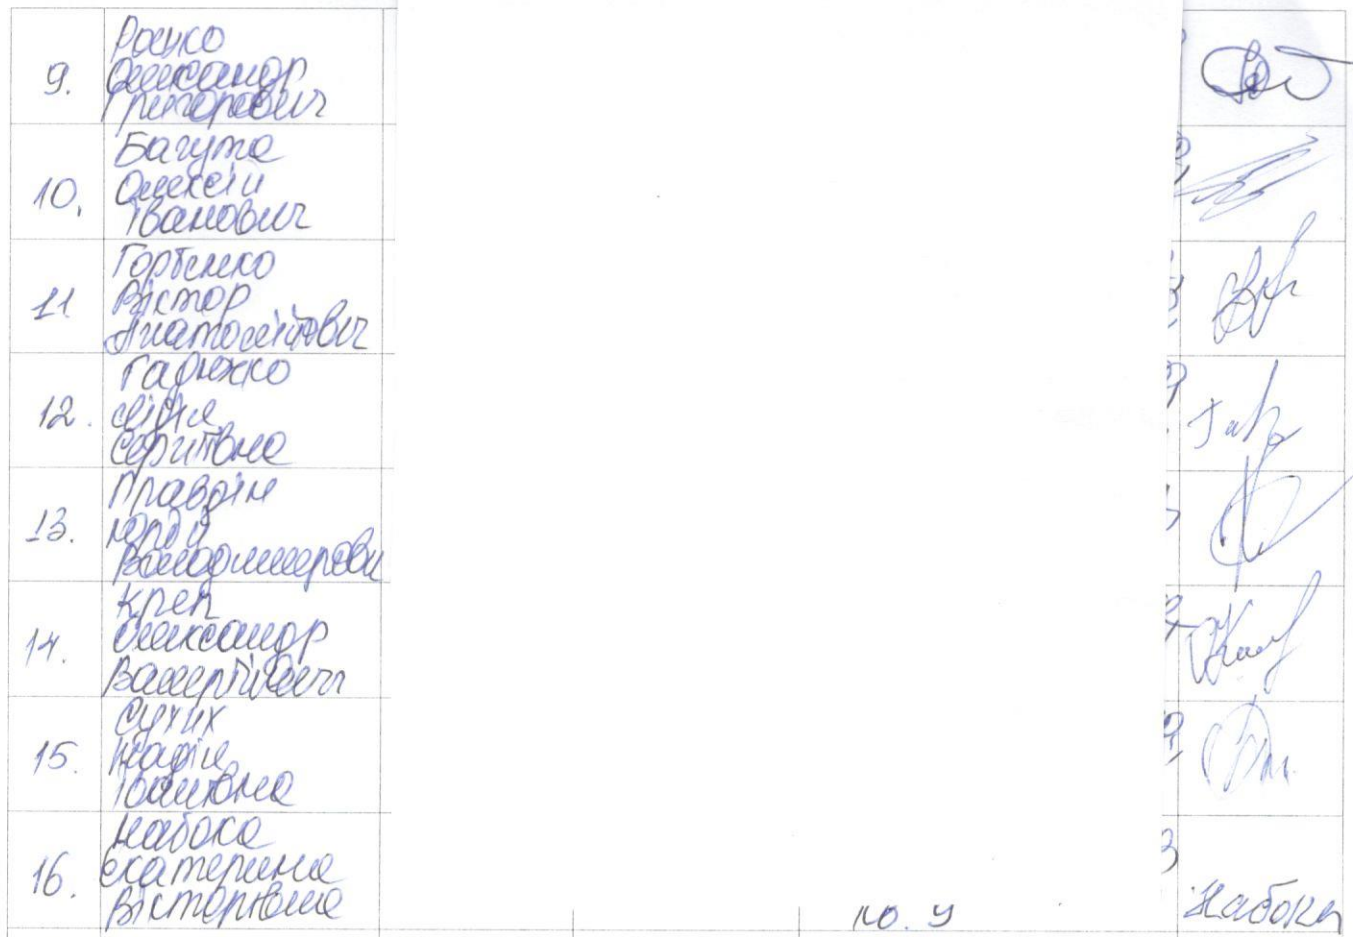 9.
Олександр
Григорович
10.
Багута
Олексій
Іванович
11
Горбенко
Віктор
Анатолійович
12.
Сергіївна
13.
Правдін
Юрій
Володимирови
14.
Креп
Олександр
Валерійович
15.
Сухих
Надія
Іванівна
16.
Набока
Екатерина
Вікторівна
Набока